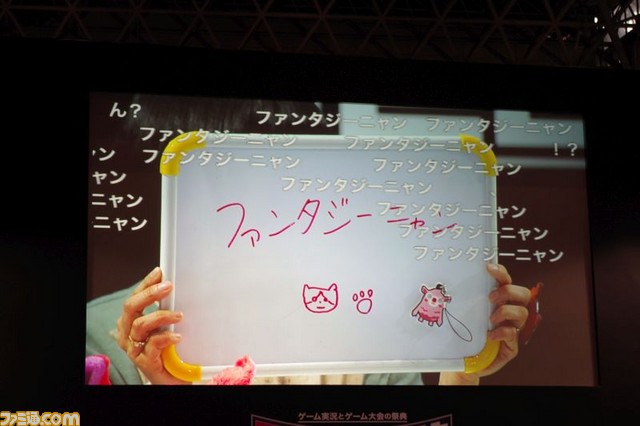 ん?
ファンタジーニャン ファンタジーニャン
ファンタジーニャン ファンタジーニャン !?
ニャン ファンタジーニャン ファンタジーニャン
ニャン ファンタジーニャン
ニャン ファンタジーニャン
ニャン ファンタジーニャン
ファンタジーニャン
ファンタジーニャン
ゲーム実況とゲーム大会の祭典
ファミ通.com